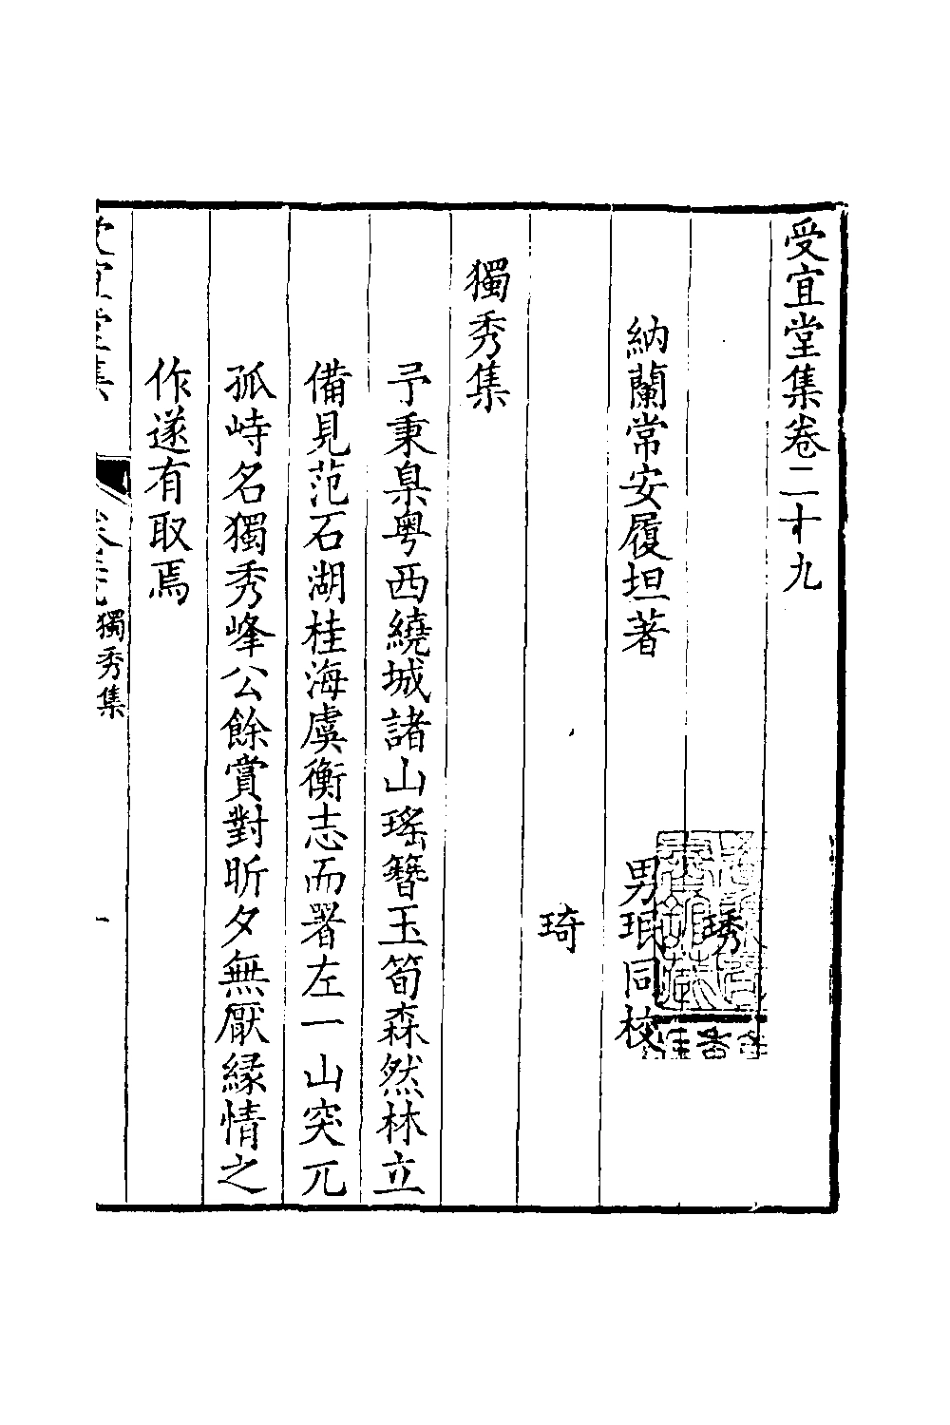 受宜堂集卷二十九
琇
納蘭常安履坦著 男珉同校
琦
獨秀集
予秉臬粤西繞城諸山瑤簪玉筍森然林立
備見范石湖桂海虞衡志而署左一山突兀
孤峙名獨秀峰公餘賞對昕夕無厭緣情之
作遂有取焉
受宜堂集 獨秀集 一